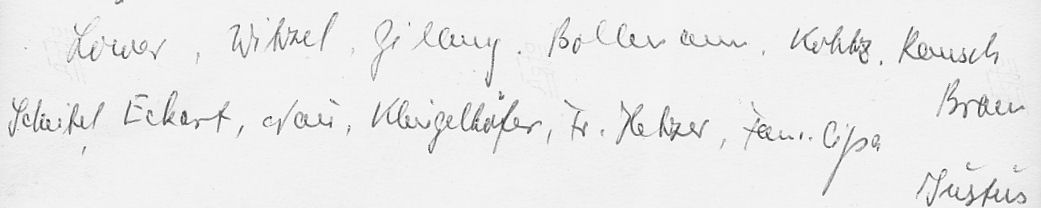 Löwer, Witzel, Gilany, Bollmann, Kohtz, Rausch
Scheitel, Eckart, Nau, Klingelhöfer, Fr. Hetzer, Fam. Cipa
Braun
Justus